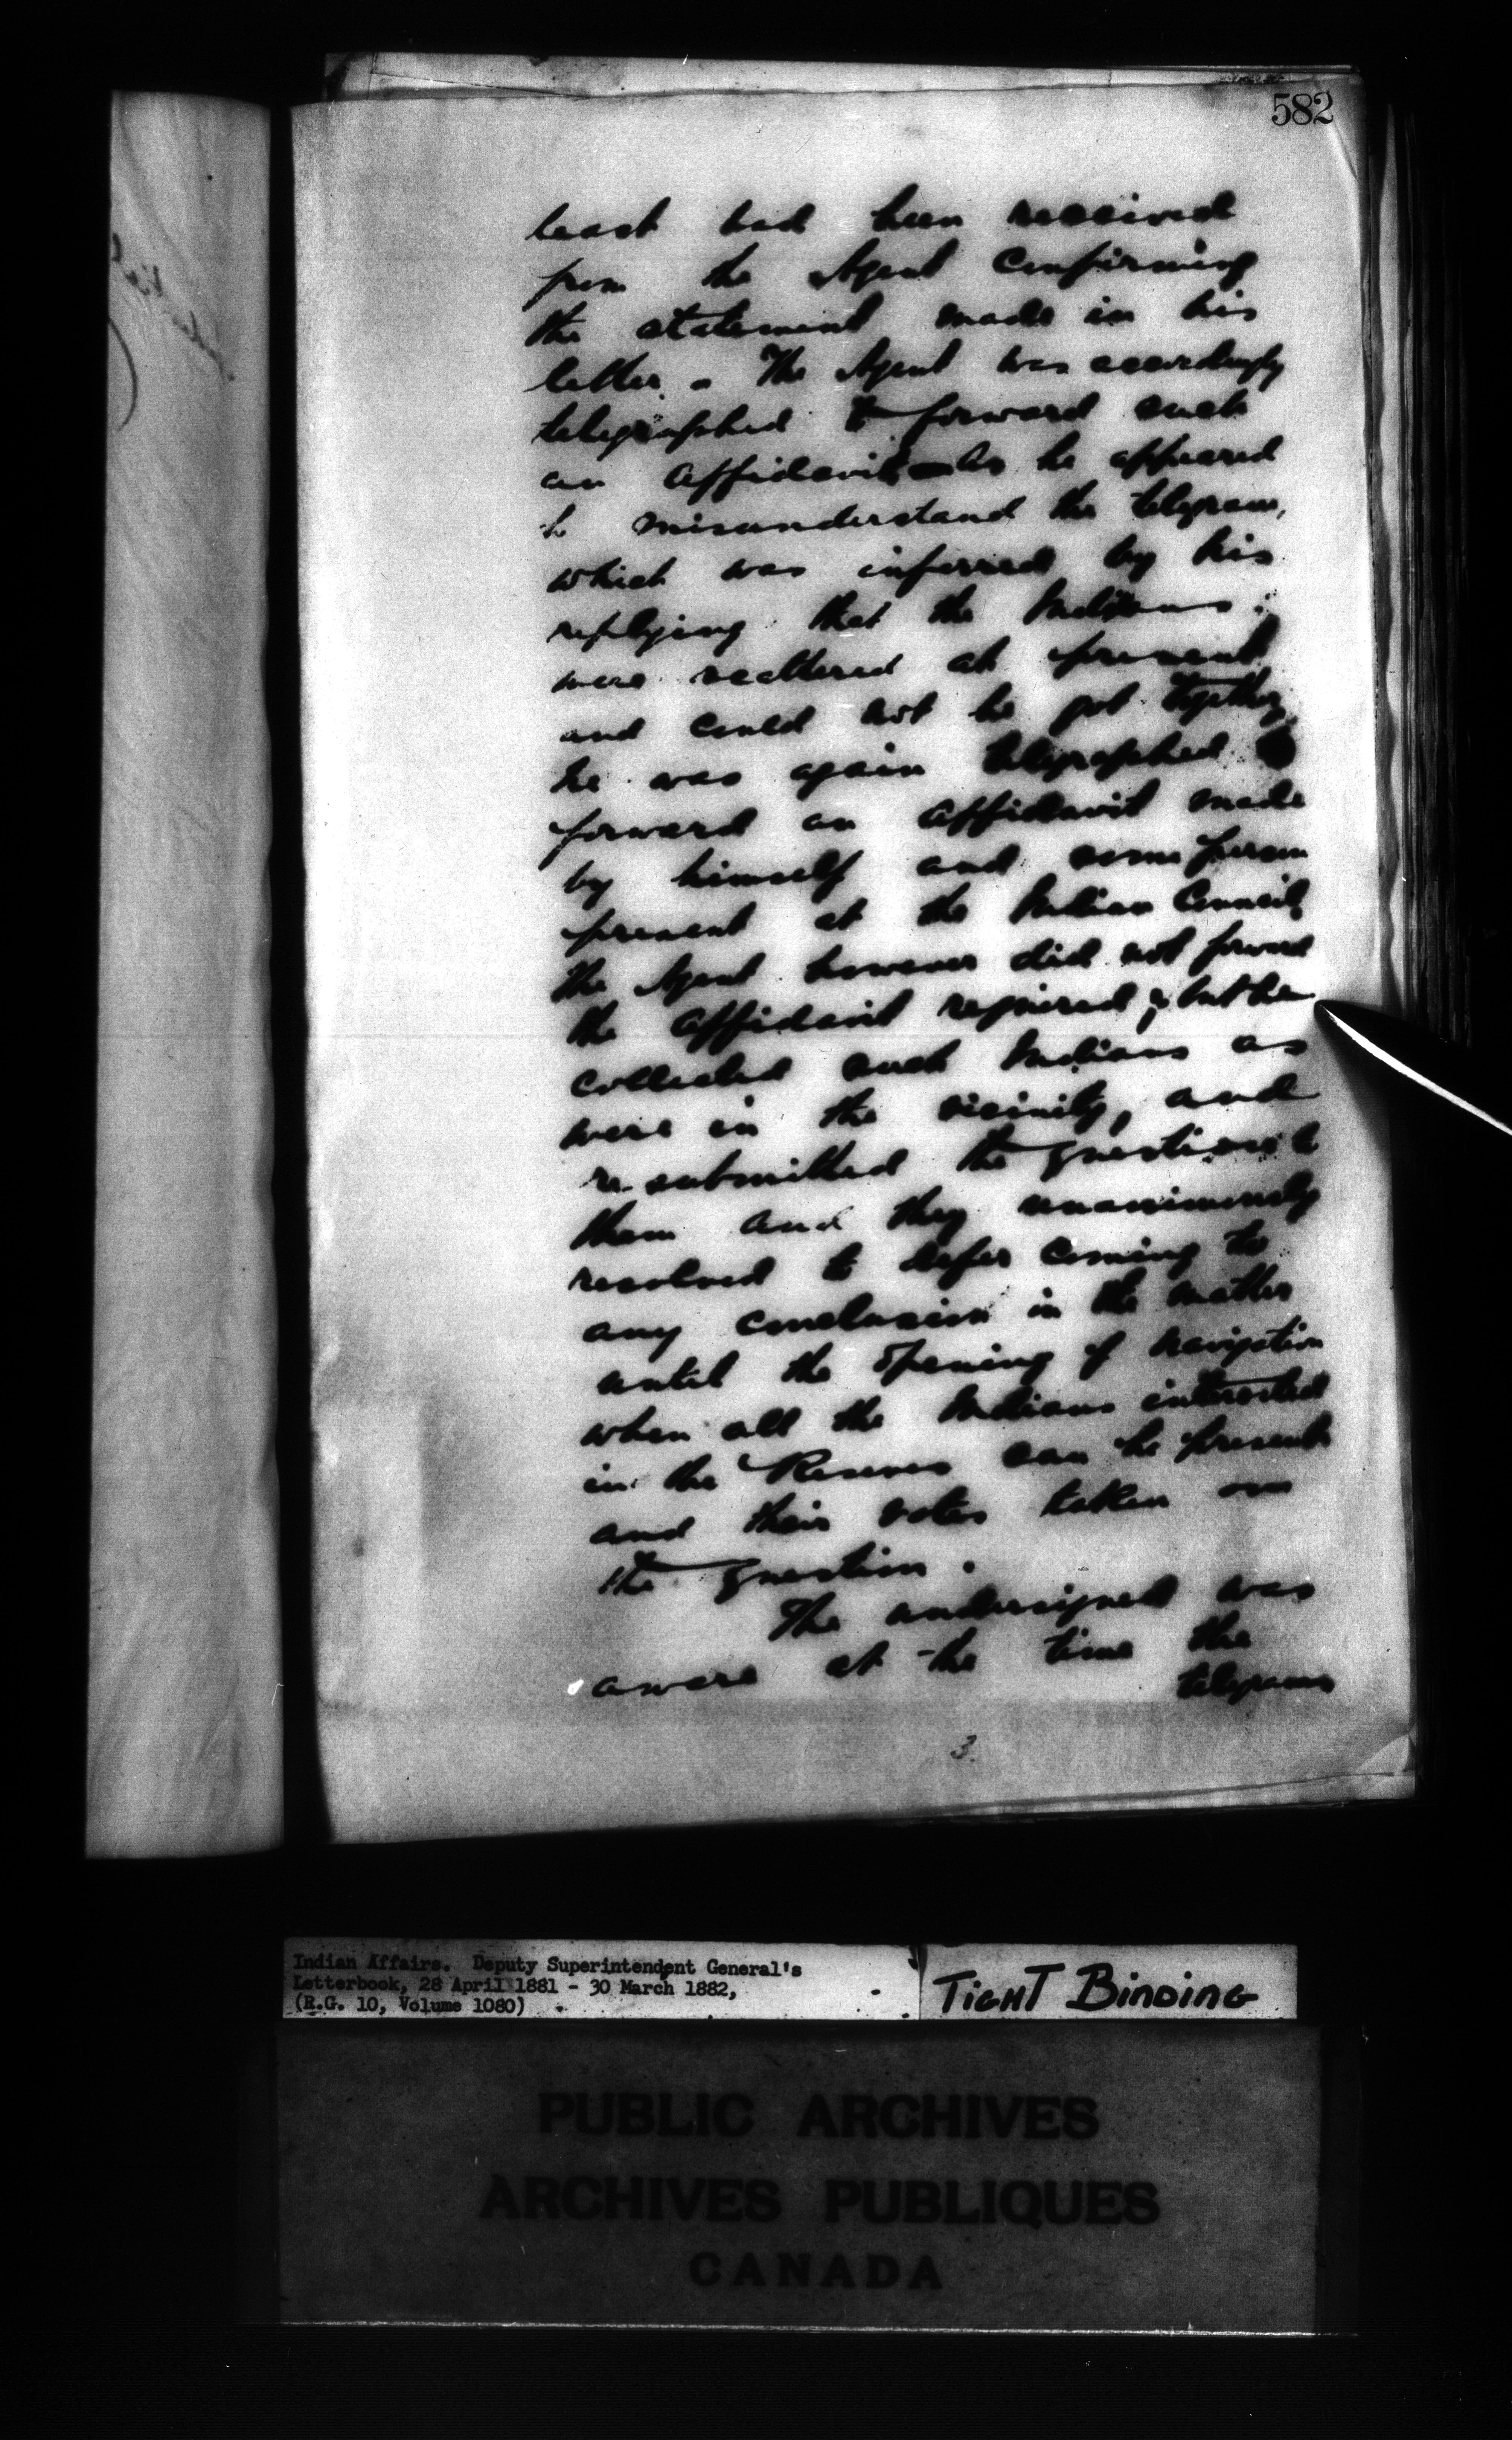 582
least had been received
from the Agent confirming
the statement made in his
letter. The Agent was accordingly
telegraphed to forward such
an affidavit - As he appeared
to misunderstand the telegram,
which was inferred by his
replying that the Indians
were scattered at present
and could not be got together,
he was again telegraphed to
forward an affidavit made
by himself and some person
present at the Indian Council,
the Agent however did not forward
the affidavit required, but he
collected such Indians as
were in the vicinity, and
re-submitted the question to
them and they unanimously
resolved to defer coming to
any conclusion in the matter
until the opening of navigation
when all the Indians interested
in the Reserves can be present
and their votes taken on
the question.
The undersigned was
aware at the time the
telegrams
3.
Indian Affairs. Deputy Superintendent General's
Letterbook, 28 April 1881 - 30 March 1882,
(R.G. 10, Volume 1080)
TIGHT BINDING
PUBLIC ARCHIVES
ARCHIVES PUBLIQUES
CANADA